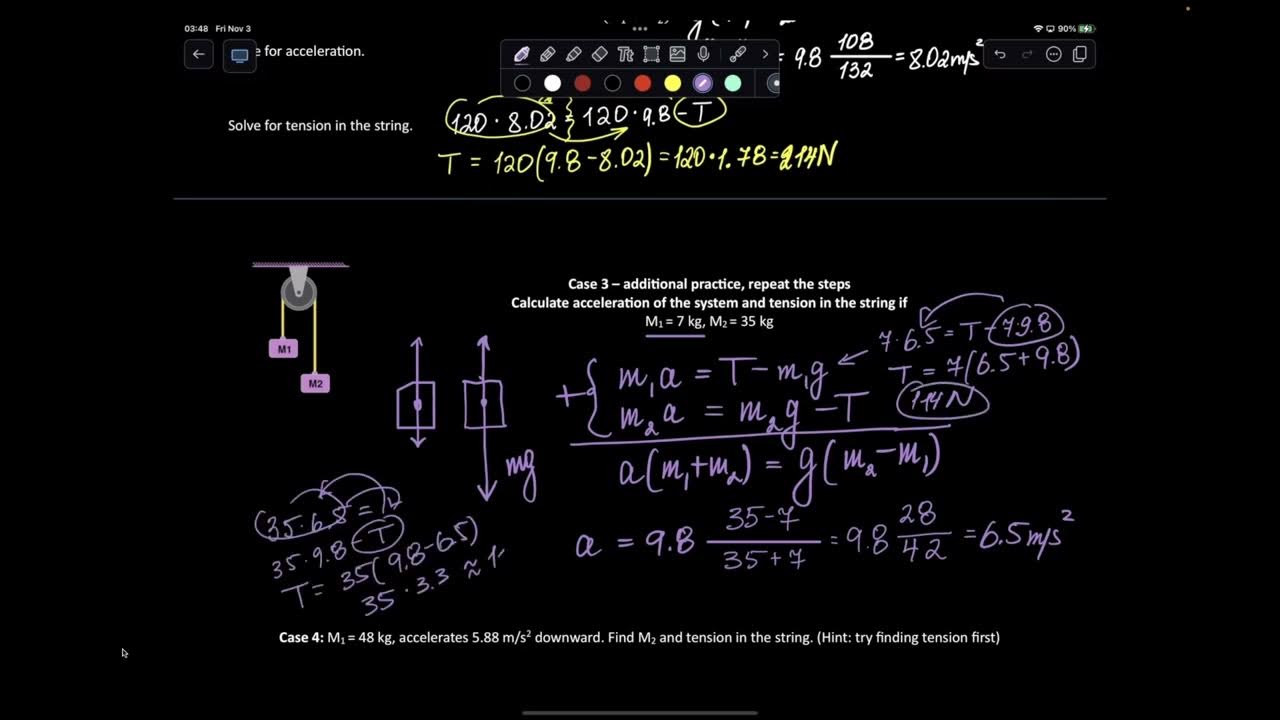 03:48 Fri Nov 3
90%
e for acceleration.
9.8 108/132 = 8.02 m/s²
120 · 8.02 = 120 · 9.8 - T
Solve for tension in the string.
T = 120(9.8 - 8.02) = 120 · 1.78 = 214N
Case 3 – additional practice, repeat the steps
Calculate acceleration of the system and tension in the string if
M₁ = 7 kg, M₂ = 35 kg
M1
M2
7 · 6.5 = T - 7·9.8
T = 7(6.5 + 9.8)
114N
m₁a = T - m₁g
m₂a = m₂g - T
a(m₁+m₂) = g(m₂-m₁)
mg
a = 9.8 35-7/35+7 = 9.8 28/42 = 6.5 m/s²
35 · 6.5 =
35 · 9.8 - T
T = 35(9.8 - 6.5)
35 · 3.3 ≈ 1
Case 4: M₁ = 48 kg, accelerates 5.88 m/s² downward. Find M₂ and tension in the string. (Hint: try finding tension first)